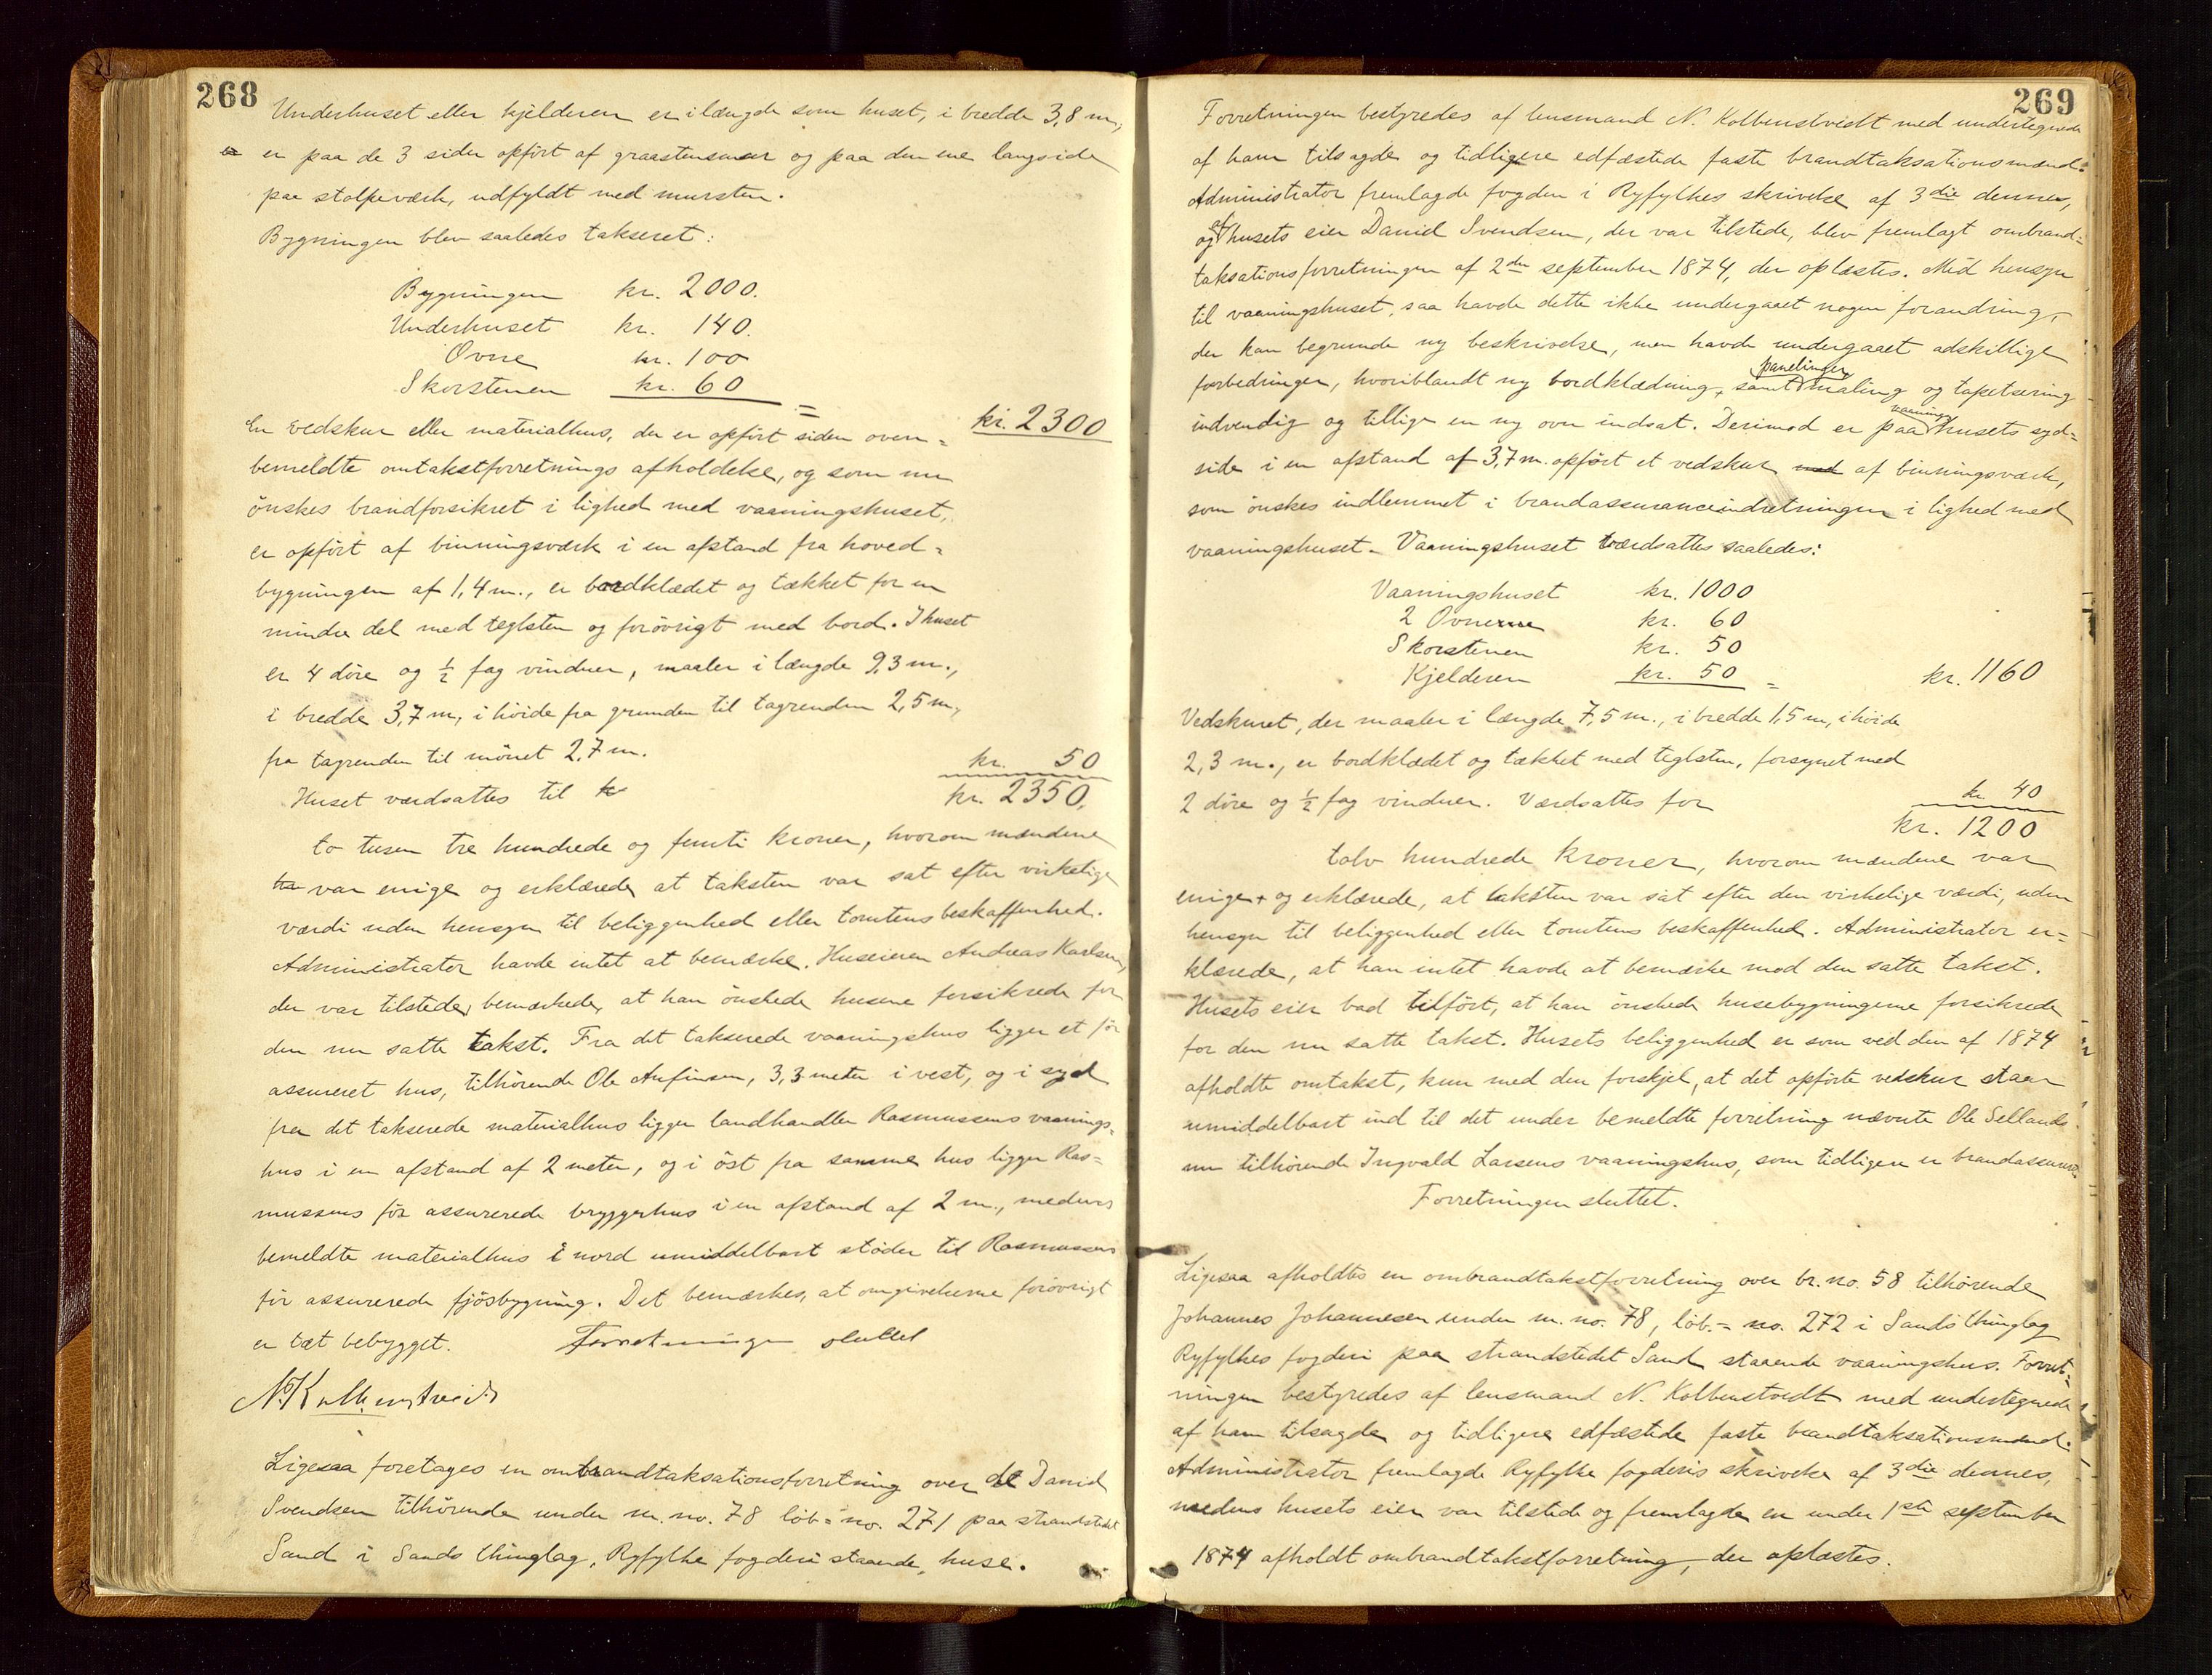 268
Underhuset eller kjelderen er i længde som huset, i bredde 3,8 m.,
er paa de 3 sider opført af graastensmur og paa den ene langside
paa stolpeværk, udfyldt med mursten.
Bygningen blev saaledes takseret:
Bygningen kr. 2000.
Underhuset kr. 140.
Ovne kr. 100
Skorstenen kr. 60 =
kr. 2300
En vedskur eller materialhus, der er opført siden oven=
bemeldte omtakstforretnings afholdelse, og som nu
ønskes brandforsikret i lighed med vaaningshuset,
er opført af binningsværk i en afstand fra hoved=
bygningen af 1,4 m., er bordklædet og tækket for en
mindre del med teglsten og forøvrigt med bord. I huset
er 4 døre og ½ fag vinduer, maaler i længde 9,3 m.,
i bredde 3,7 m, i høide fra grunden til tagrenden 2,5 m,
fra tagrenden til mønet 2,7 m.
Huset værdsattes til kr kr. 50
kr. 2350.
to tusen tre hundrede og femti kroner, hvorom mændene
var enige og erklærede at taksten var sat efter virkelige
værdi uden hensyn til beliggenhed eller tomtens beskaffenhed.
Administrator havde intet at bemærke. Huseieren Andreas Karlsen,
der var tilstede, bemærkede, at han ønskede husene forsikrede for
den nu satte takst. Fra det takserede vaaningshus ligger et før
assureret hus, tilhørende Ole Anfinsen, 3,3 meter i vest, og i syd
fra det takserede materialhus ligger landhandler Rasmussens vaanings=
hus i en afstand af 2 meter, og i øst fra samme hus ligger Ras=
mussens før assurerede bryggerhus i en afstand af 2 m., medens
bemeldte materialhus i nord umiddelbart støder til Rasmussens
før assurerede fjøsbygning. Det bemærkes, at omgivelserne forøvrigt
er tæt bebygget. Forretningen sluttet
N. Kolbenstvedt
Ligesaa foretages en ombrandtaksationsforretning over de Daniel
Svendsen tilhørende under m. no. 78 løb.= no. 271 paa strandstedet
Sand i Sands thinglag, Ryfylke fogderi staaende, huse.
269
Forretningen bestyredes af lensmand N. Kolbenstvedt med undertegnede
af ham tilsagde og tidligere edfæstede faste brandtaksationsmænd.
Administrator fremlagde fogden i Ryfylkes skrivelse af 3die dennes,
og af husets eier Daniel Svendsen, der var tilstede, blev fremlagt ombrand=
taksationsforretningen af 2den september 1874, der oplæstes. Med hensyn
til vaaningshuset, saa havde dette ikke undergaaet nogen forandring,
der kan begrunde ny beskrivelse, men havde undergaaet adskillige
forbedringer, hvoriblandt ny bordklædning, samt panelinger, maling og tapetsering
indvendig og tillige en ny ovn indsat. Derimod er paa vaaningshusets syd=
side i en afstand af 3,7 m. opført et vedskur med af binningsværk,
som ønskes indlemmet i brandassuranceindretningen i lighed med
vaaningshuset. Vaaningshuset værdsattes saaledes:
Vaaningshuset kr. 1000
2 Ovne kr. 60
Skorstenen kr. 50
Kjelderen kr. 50 = kr. 1160
Vedskuret, der maaler i længde 7,5 m., i bredde 1,5 m, i høide
2,3 m., er bordklædet og tækket med teglsten, forsynet med
2 døre og ½ fag vinduer. Værdsattes for kr 40
kr. 1200
tolv hundrede kroner, hvorom mændene var
enige og erklærede, at taksten var sat efter den virkelige værdi, uden
hensyn til beliggenhed eller tomtens beskaffenhed. Administrator er=
klærede, at han intet havde at bemærke mod den satte takst.
Husets eier bad tilført, at han ønskede husebygningerne forsikrede
for den nu satte takst. Husets beliggenhed er som ved den af 1874
afholdte omtakst, kun med den forskjel, at det opførte vedskur staar
umiddelbart ind til det under bemeldte forretning nævnte Ole Sellands
nu tilhørende Ingvald Larsens vaaningshus, som tidligere er brandassureret.
Forretningen sluttet.
Ligesaa afholdtes en ombrandtakstforretning over br. no. 58 tilhørende
Johannes Johannesen under m. no. 78, løb.= no. 272 i Sands thinglag
Ryfylkes fogderi paa strandstedet Sand staaende vaaningshus. Forret=
ningen bestyredes af lensmand N. Kolbenstvedt med undertegnede
af ham tilsagde og tidligere edfæstede faste brandtaksationsmænd.
Administrator fremlagde Ryfylke fogderis skrivelse af 3die dennes,
medens husets eier var tilstede og fremlagde en under 1ste september
1874 afholdt ombrandtakstforretning, der oplæstes.